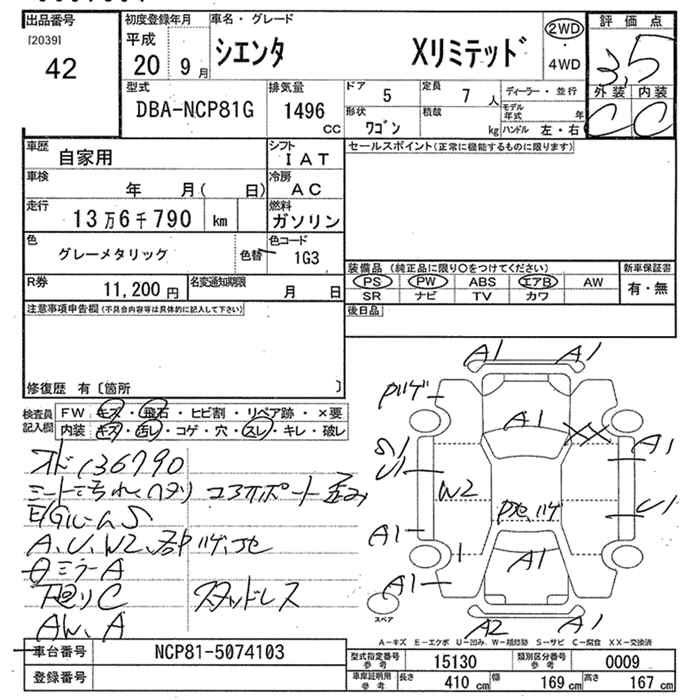 出品番号
[2039]
42
初度登録年月
平成
20 9月
車名・グレード
シエンタ Xリミテッド
2WD
・
4WD
評価点
3.5
外装 内装
C C
型式
DBA-NCP81G
排気量
1496
CC
ドア
5
定員
7 人
形状
ワゴン
積載
kg
ディーラー・並行
モデル年式 年
ハンドル 左・右
車歴
自家用
シフト
IAT
車検
年 月( 日)
冷房
AC
走行
13万6千790 km
燃料
ガソリン
色
グレーメタリック
色替
色コード
1G3
R券
11,200 円
名変通知期限
月 日
セールスポイント(正常に機能するものに限ります)
装備品 (純正品に限り○をつけてください)
PS PW ABS エアB AW
SR ナビ TV カワ
新車保証書
有・無
後日品
注意事項申告欄(不具合内容等は具体的に記入して下さい)
修復歴 有〔箇所 〕
検査員記入欄
FW キズ・飛石・ヒビ割・リペア跡・×要
内装 キズ・汚レ・コゲ・穴・スレ・キレ・破レ
136790
A、U、W2
ミラーA
下廻りC スタッドレス
AW、A
A1 A1
A1
XX
A1
U1
W2
U1
A1
A1
A1
A2 A1
スペア
A-キズ E-エクボ U-凹み W-補修跡 S-サビ C-腐食 XX-交換済
車台番号
NCP81-5074103
登録番号
型式指定番号 参考
15130
類別区分番号 参考
0009
車庫証明用 参考
長さ 410 cm 幅 169 cm 高さ 167 cm